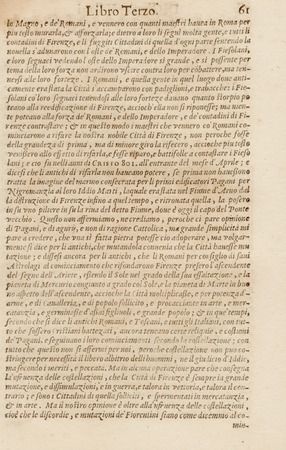 Libro Terzo. 61
lo Magno, e de' Romani, e vennero con quanti maestri hauea in Roma per
più tosto murarla, & afforzarla; e dietro a loro li seguì molta gente, e tutti li
contadini di Firenze, e li fuggiti Cittadini di quella d'ogni parte sentendo la
nouella s'adunarono con l'oste de' Romani, e dello Imperadore. I Fiesolani,
e loro seguaci vedendo l'oste dello Imperadore sì grande, e sì possente per
tema della loro forza non ardirono vscire contra loro per cōbattere, ma ten-
nersi alle loro fortezze. I Romani, e quella gente in quel luogo doue anti-
camente era stata la Città s'accamparono con padiglioni, e trabacche: i Fie-
solani co' loro seguaci tenendosi alle loro fortezze dauano quanto storpio po
teuano alla reedificazione di Firenze, acciochè ella non si riponesse; ma nien-
te potero alla forza de' Romani, e dello Imperadore, e de' contadini di Fi-
renze contrastare; & in questo modo i maestri che vennero cō' Romani, co-
minciarono a rifare la nostra nobile Città di Firenze, non perochè fosse
della grandezza di prima, ma di minore giro la rifecero, acciochè più tosto
venissero allo effetto di rifarla, e fosse riparo, e battifolle a contastare i Fieso
lani; e ciò fu nelli anni di CRISTO 801. all'entrante del mese d'Aprile; e
dicesi che li antichi di rifarla non haueano potere, se prima non hauessono
tratta la imagine del marmo consecrata per li primi edificatori Pagani per
Nigromanzia al loro Iddio Marti, laquale era stata nel Fiume d'Arno dal
la distruzione di Firenze infino a quel tempo, e ritrouata quella, la posero
in sù vno piliere in sù la riua del detto Fiume, doue è oggi il capo del Ponte
vecchio. Questo non affermiamo, ne crediamo, perochè ci pare opinione
di Pagani, e di aguri, e non di ragione Cattolica, ma grande simplicità mi
pare a credere, che vna sì fatta pietra potesse ciò adoperare, ma volgar-
mente si dice per li antichi, che mutandola conuenìa che la Città hauesse mu
tazione; e dissesi ancora per li antichi, che li Romani per consiglio di saui
Astrolagi al cominciamento che rifondarono Firenze presero l'ascendente
del segno dell'Ariete, essendo il Sole nel grado della sua esaltazione, e la
pianeta di Mercurio congiunto a grado col Sole, e la pianeta di Marte in buo
no aspetto dell'ascendente, acciochè la Città moltiplicasse, e per potenza d'ar-
me, e di caualleria, e di popolo sollicito, e procacciante in arte, e mer-
catanzia, e germinasse d'assai figliuoli, e grande popolo; & in que' tempi,
secondo che si dice li antichi Romani, e Toscani, e tutti gli Italiani, con tut-
to che fossero cristiani battezzati, ancora teneano certe reliquie, e costumi
de' Pagani, e seguiuano i loro cominciamenti secondo la costellazione; con
tutto che questo non si affermi per noi, perochè costellazione non può con-
stringere per necessità il libero albitrio delli huomini, ne il giudicio d'Iddio,
ma secondo i meriti, e peccata. Ma in alcuna operazione pare che consegua
l'influenza delle costellazioni, che la Città di Firenze è sempre in grande
mutazione, e dissimulazioni, e in guerra, e talora in vettoria, e talora il con
trario; e sono i Cittadini di quella solliciti, e sperimentati in mercatanzia,
& in arte. Ma il nostro opinione è oltre alla influenza delle costellazioni,
cioè che le discordie, e mutazioni de' Fiorentini siano come dicemmo al co-
min-